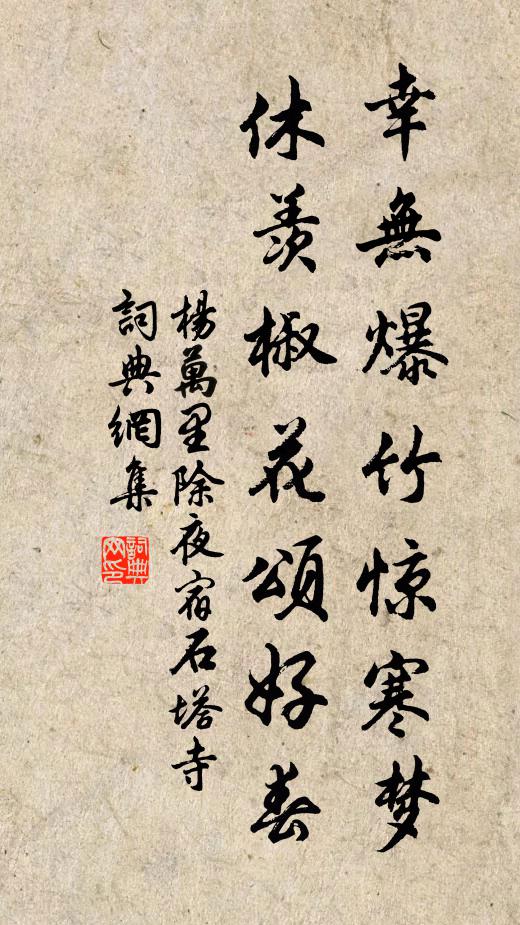 幸無爆竹惊寒梦
休羨椒花頌好春
楊萬里除夜宿石塔寺
詞典網集
詞典网印